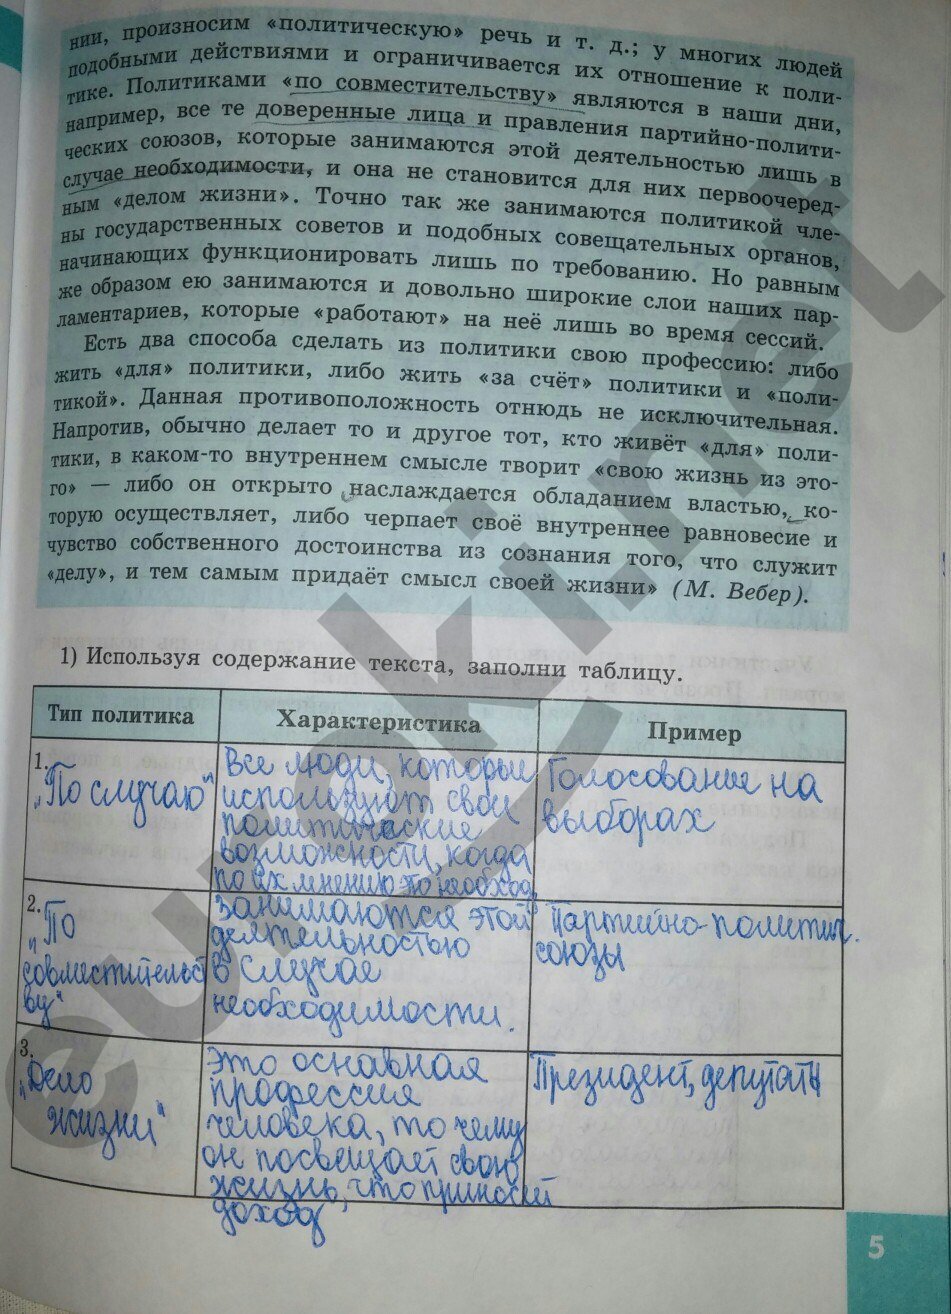 нии, произносим «политическую» речь и т. д.; у многих людей
подобными действиями и ограничивается их отношение к поли-
тике. Политиками «по совместительству» являются в наши дни,
например, все те доверенные лица и правления партийно-полити-
ческих союзов, которые занимаются этой деятельностью лишь в
случае необходимости, и она не становится для них первоочеред-
ным «делом жизни». Точно так же занимаются политикой чле-
ны государственных советов и подобных совещательных органов,
начинающих функционировать лишь по требованию. Но равным
же образом ею занимаются и довольно широкие слои наших пар-
ламентариев, которые «работают» на неё лишь во время сессий.
Есть два способа сделать из политики свою профессию: либо
жить «для» политики, либо жить «за счёт» политики и «поли-
тикой». Данная противоположность отнюдь не исключительная.
Напротив, обычно делает то и другое тот, кто живёт «для» поли-
тики, в каком-то внутреннем смысле творит «свою жизнь из это-
го» — либо он открыто наслаждается обладанием властью, ко-
торую осуществляет, либо черпает своё внутреннее равновесие и
чувство собственного достоинства из сознания того, что служит
«делу», и тем самым придаёт смысл своей жизни» (М. Вебер).
1) Используя содержание текста, заполни таблицу.
Тип политика Характеристика Пример
1.
„По случаю“
Все люди, которые
используют свои
политические
возможности, когда
по их мнению это необход.
Голосование на
выборах
2.
„По
совместительст
ву“
занимаются этой
деятельностью
в случае
необходимости.
Партийно-политич.
союзы
3.
„Дело
жизни“
это основная
профессия
человека, то чему
он посвещает свою
жизнь, что приносит
доход
Президент, депутаты
5
euroki.net